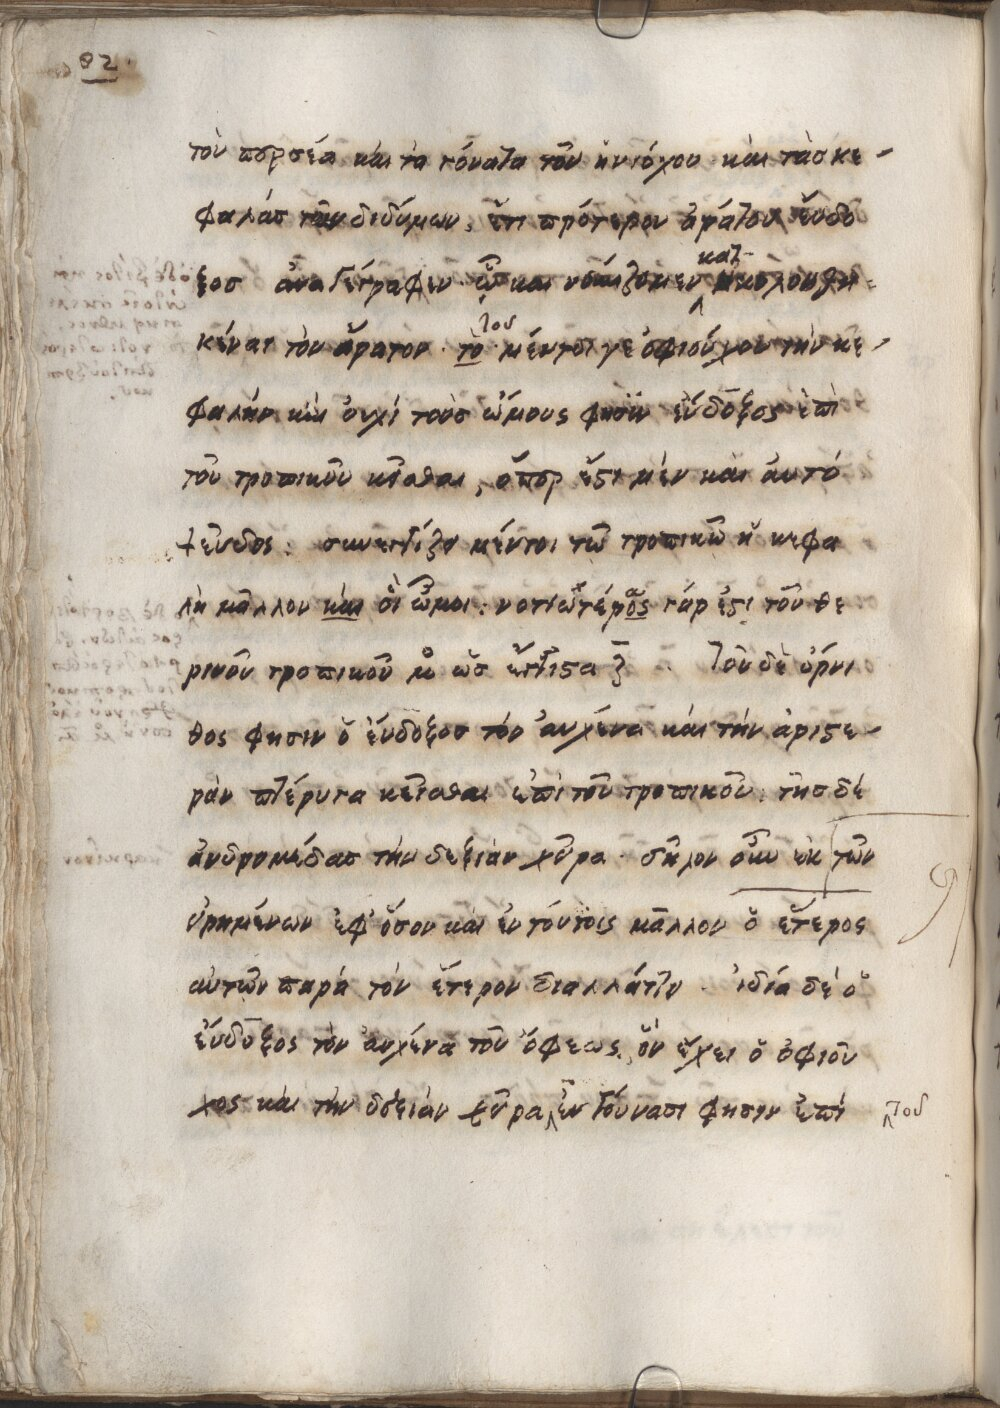 82
τὸν περσέα καὶ τὰ γόνατα τοῦ ἡνιόχου καὶ τὰσ κε-
φαλὰσ τῶν διδύμων, ἔτι πρότερον ἀράτου εὔδο
ξοσ ἀναγέγραφεν· ᾧ καὶ νομίζομεν κατ ηκολουθη-
κέναι τὸν ἄρατον· τὸ του μέντοι γε ὀφιούχου τὴν κε-
φαλὴν καὶ ὀυχὶ τοὺσ ὤμους φησὶν εὔδοξος ἐπὶ
τοῦ τροπικοῦ κεῖσθαι, ὅπερ ἔστι μὲν καὶ ἀυτὸ
ψεῦδος: συνεγγίζει μέντοι τῶ τροπικῶ ἡ κεφα
λὴ μᾶλλον καὶ ὁι ὦμοι: νοτιωτέρος γάρ ἐστι τοῦ θε
ρινοῦ τροπικοῦ μο ὡσ ἔγγιστα ζ Τοῦ δὲ ὄρνι
θος φησιν ὁ ἔυδοξοσ τὸν ἀυχένα καὶ τὴν ἀριστε-
ρὰν πτέρυγα κεῖσθαι ἐπὶ τοῦ τροπικοῦ· τῆσ δὲ
ἀνδρομέδασ τὴν δεξιὰν χεῖρα· δῆλον οὖν ἐκ τῶν
εἰρημένων ἐφ' ὅσον καὶ ἐν τούτοις μᾶλλον ὁ ἕτερος
αὐτῶν παρὰ τὸν ἕτερον διαλλάττει· ἰδία δὲ ὁ
ἔυδοξος τὸν ἀυχένα τοῦ ὄφεως, ὃν ἔχει ὁ ὀφιοῦ
χος καὶ τὴν δεξιὰν χεῖρα ἐν γούνασι φησιν ἐπὶ του